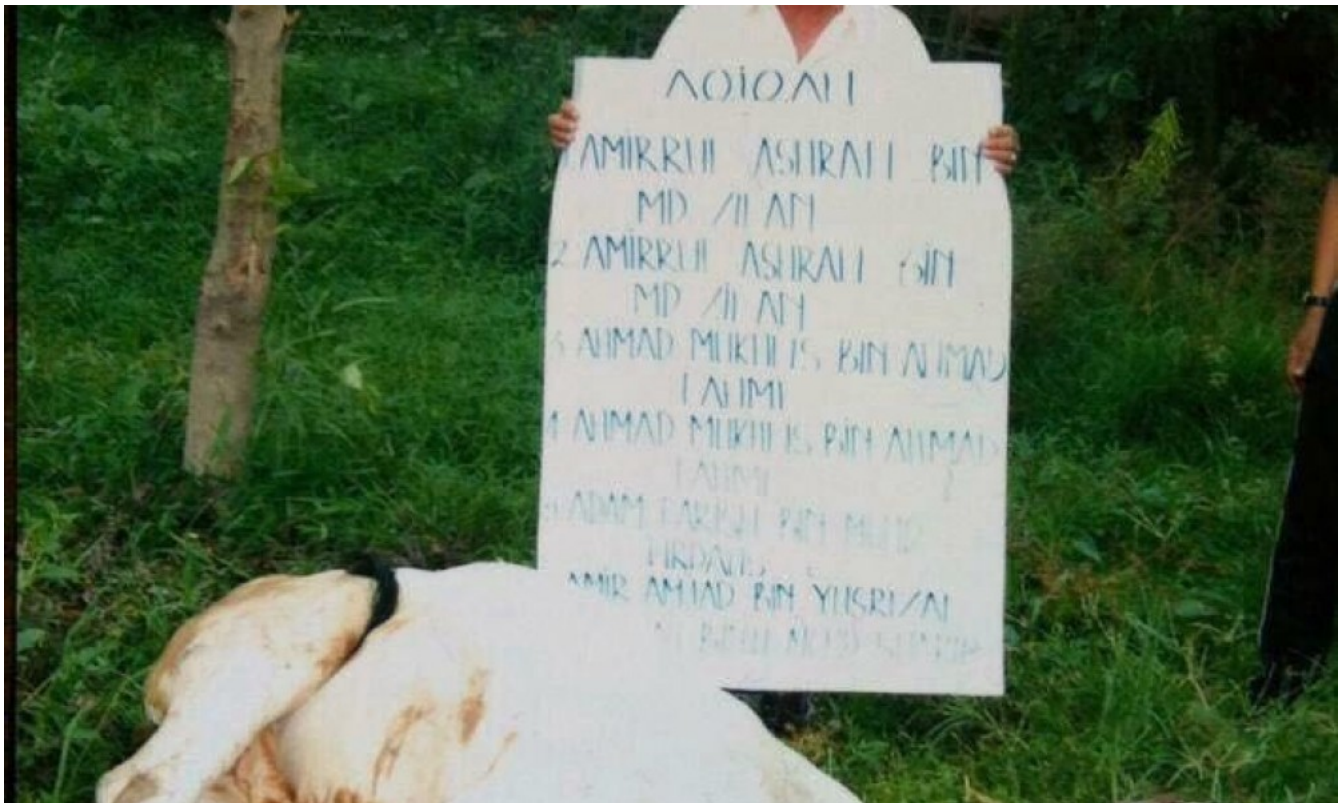 AQIQAH
1 AMIRRUL ASHRAFF BIN
MD ZULAN
2 AMIRRUL ASHRAFF BIN
MD ZULAN
3 AHMAD MUKHLIS BIN AHMAD
FAHMI
4 AHMAD MUKHLIS BIN AHMAD
FAHMI
5 ADAM FARISH BIN MUHD
FIRDAUS
AMIR AMJAD BIN YUSRIZAL
BINTI MOHD